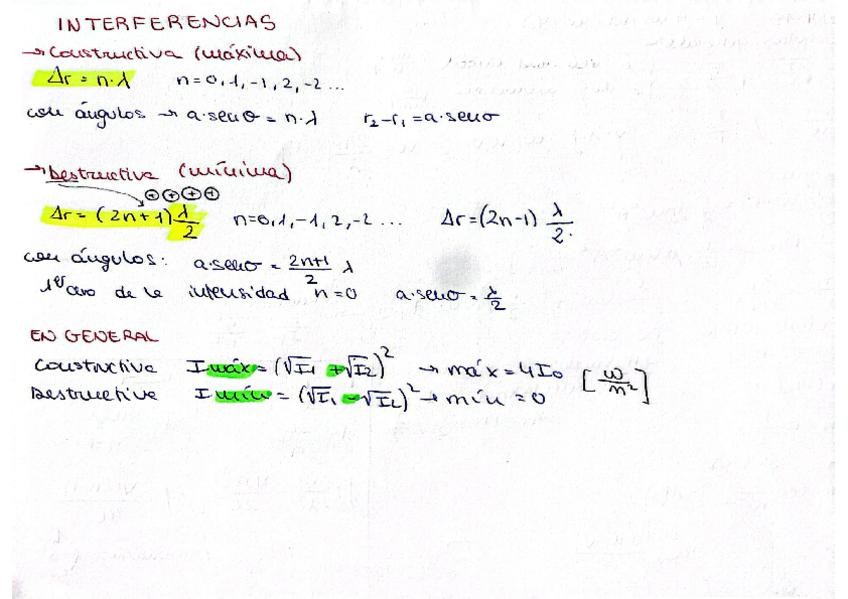 INTERFERENCIAS
→ Constructiva (máxima)
Δr = n·λ n=0,1,-1,2,-2...
con ángulos → a·senθ = n·λ r₂-r₁ = a·senθ
→ Destructiva (mínima)
⊕⊕⊕⊕
Δr = (2n+1) λ/2 n=0,1,-1,2,-2... Δr=(2n-1) λ/2.
con ángulos: a·senθ = 2n+1/2 λ
1er cero de la intensidad n=0 a·senθ = λ/2
EN GENERAL
Constructiva I máx = (√I₁ + √I₂)² → máx = 4I₀ [w/m²]
Destructiva I mín = (√I₁ - √I₂)² → mín = 0